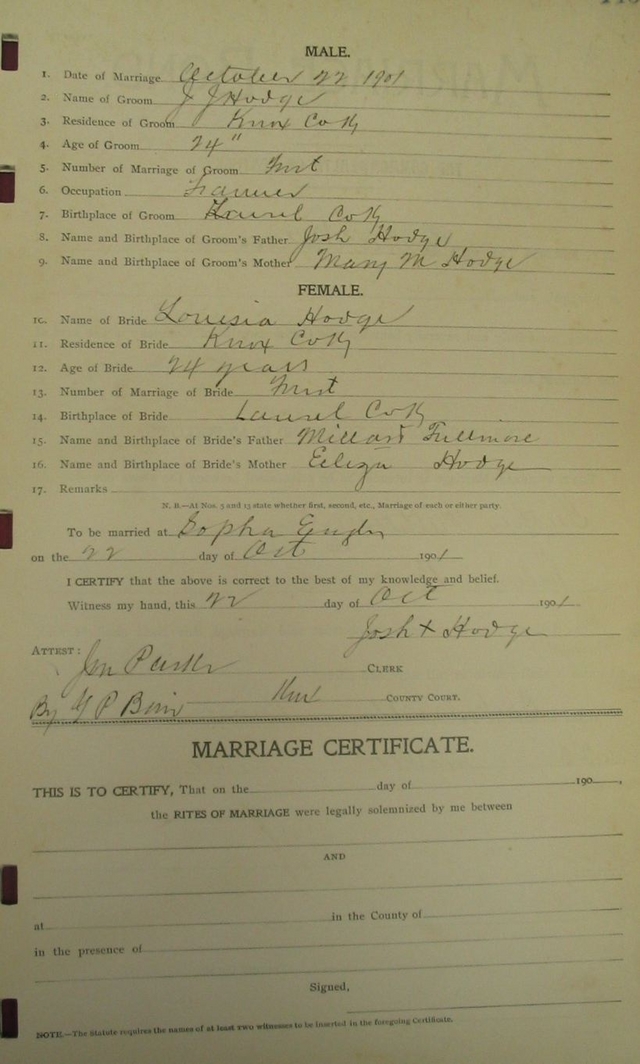 MALE.
1. Date of Marriage October 22 1901
2. Name of Groom J J Hodge
3. Residence of Groom Knox Co Ky
4. Age of Groom 24 "
5. Number of Marriage of Groom First
6. Occupation Farmer
7. Birthplace of Groom Laurel Co Ky
8. Name and Birthplace of Groom's Father Josh Hodge
9. Name and Birthplace of Groom's Mother Mary M Hodge
FEMALE.
10. Name of Bride Louisia Hodge
11. Residence of Bride Knox Co Ky
12. Age of Bride 24 years
13. Number of Marriage of Bride First
14. Birthplace of Bride Laurel Co Ky
15. Name and Birthplace of Bride's Father Millard Fullmore
16. Name and Birthplace of Bride's Mother Eeliza Hodge
17. Remarks
N. B.—At Nos. 5 and 13 state whether first, second, etc., Marriage of each or either party.
To be married at Sopha
on the 22 day of Oct 1901
I CERTIFY that the above is correct to the best of my knowledge and belief.
Witness my hand, this 22 day of Oct 1901
Josh X Hodge
ATTEST:
Jm Parker CLERK
By G P Knox COUNTY COURT.
MARRIAGE CERTIFICATE.
THIS IS TO CERTIFY, That on the day of 190 ,
the RITES OF MARRIAGE were legally solemnized by me between
AND
at in the County of
in the presence of
Signed,
NOTE.—The Statute requires the names of at least two witnesses to be inserted in the foregoing Certificate.